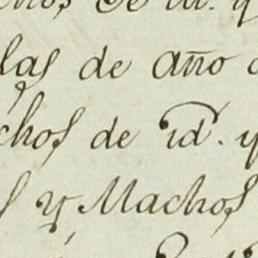 de id. y
las de año
chos de id. y
s y Machos